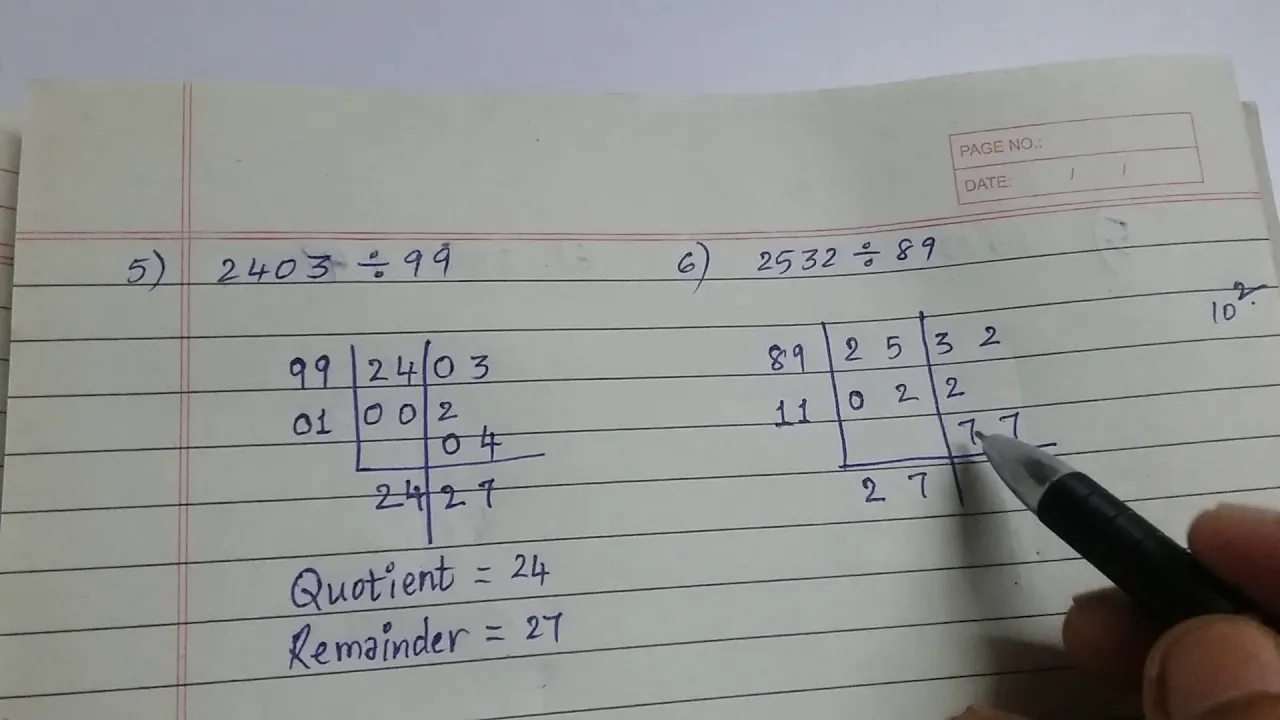 PAGE NO.:
DATE: / /
5) 2403 ÷ 99
99 24 03
01 00 2
04
24 27
Quotient = 24
Remainder = 27
6) 2532 ÷ 89
10²
89 2 5 3 2
11 0 2 2
7 7
2 7